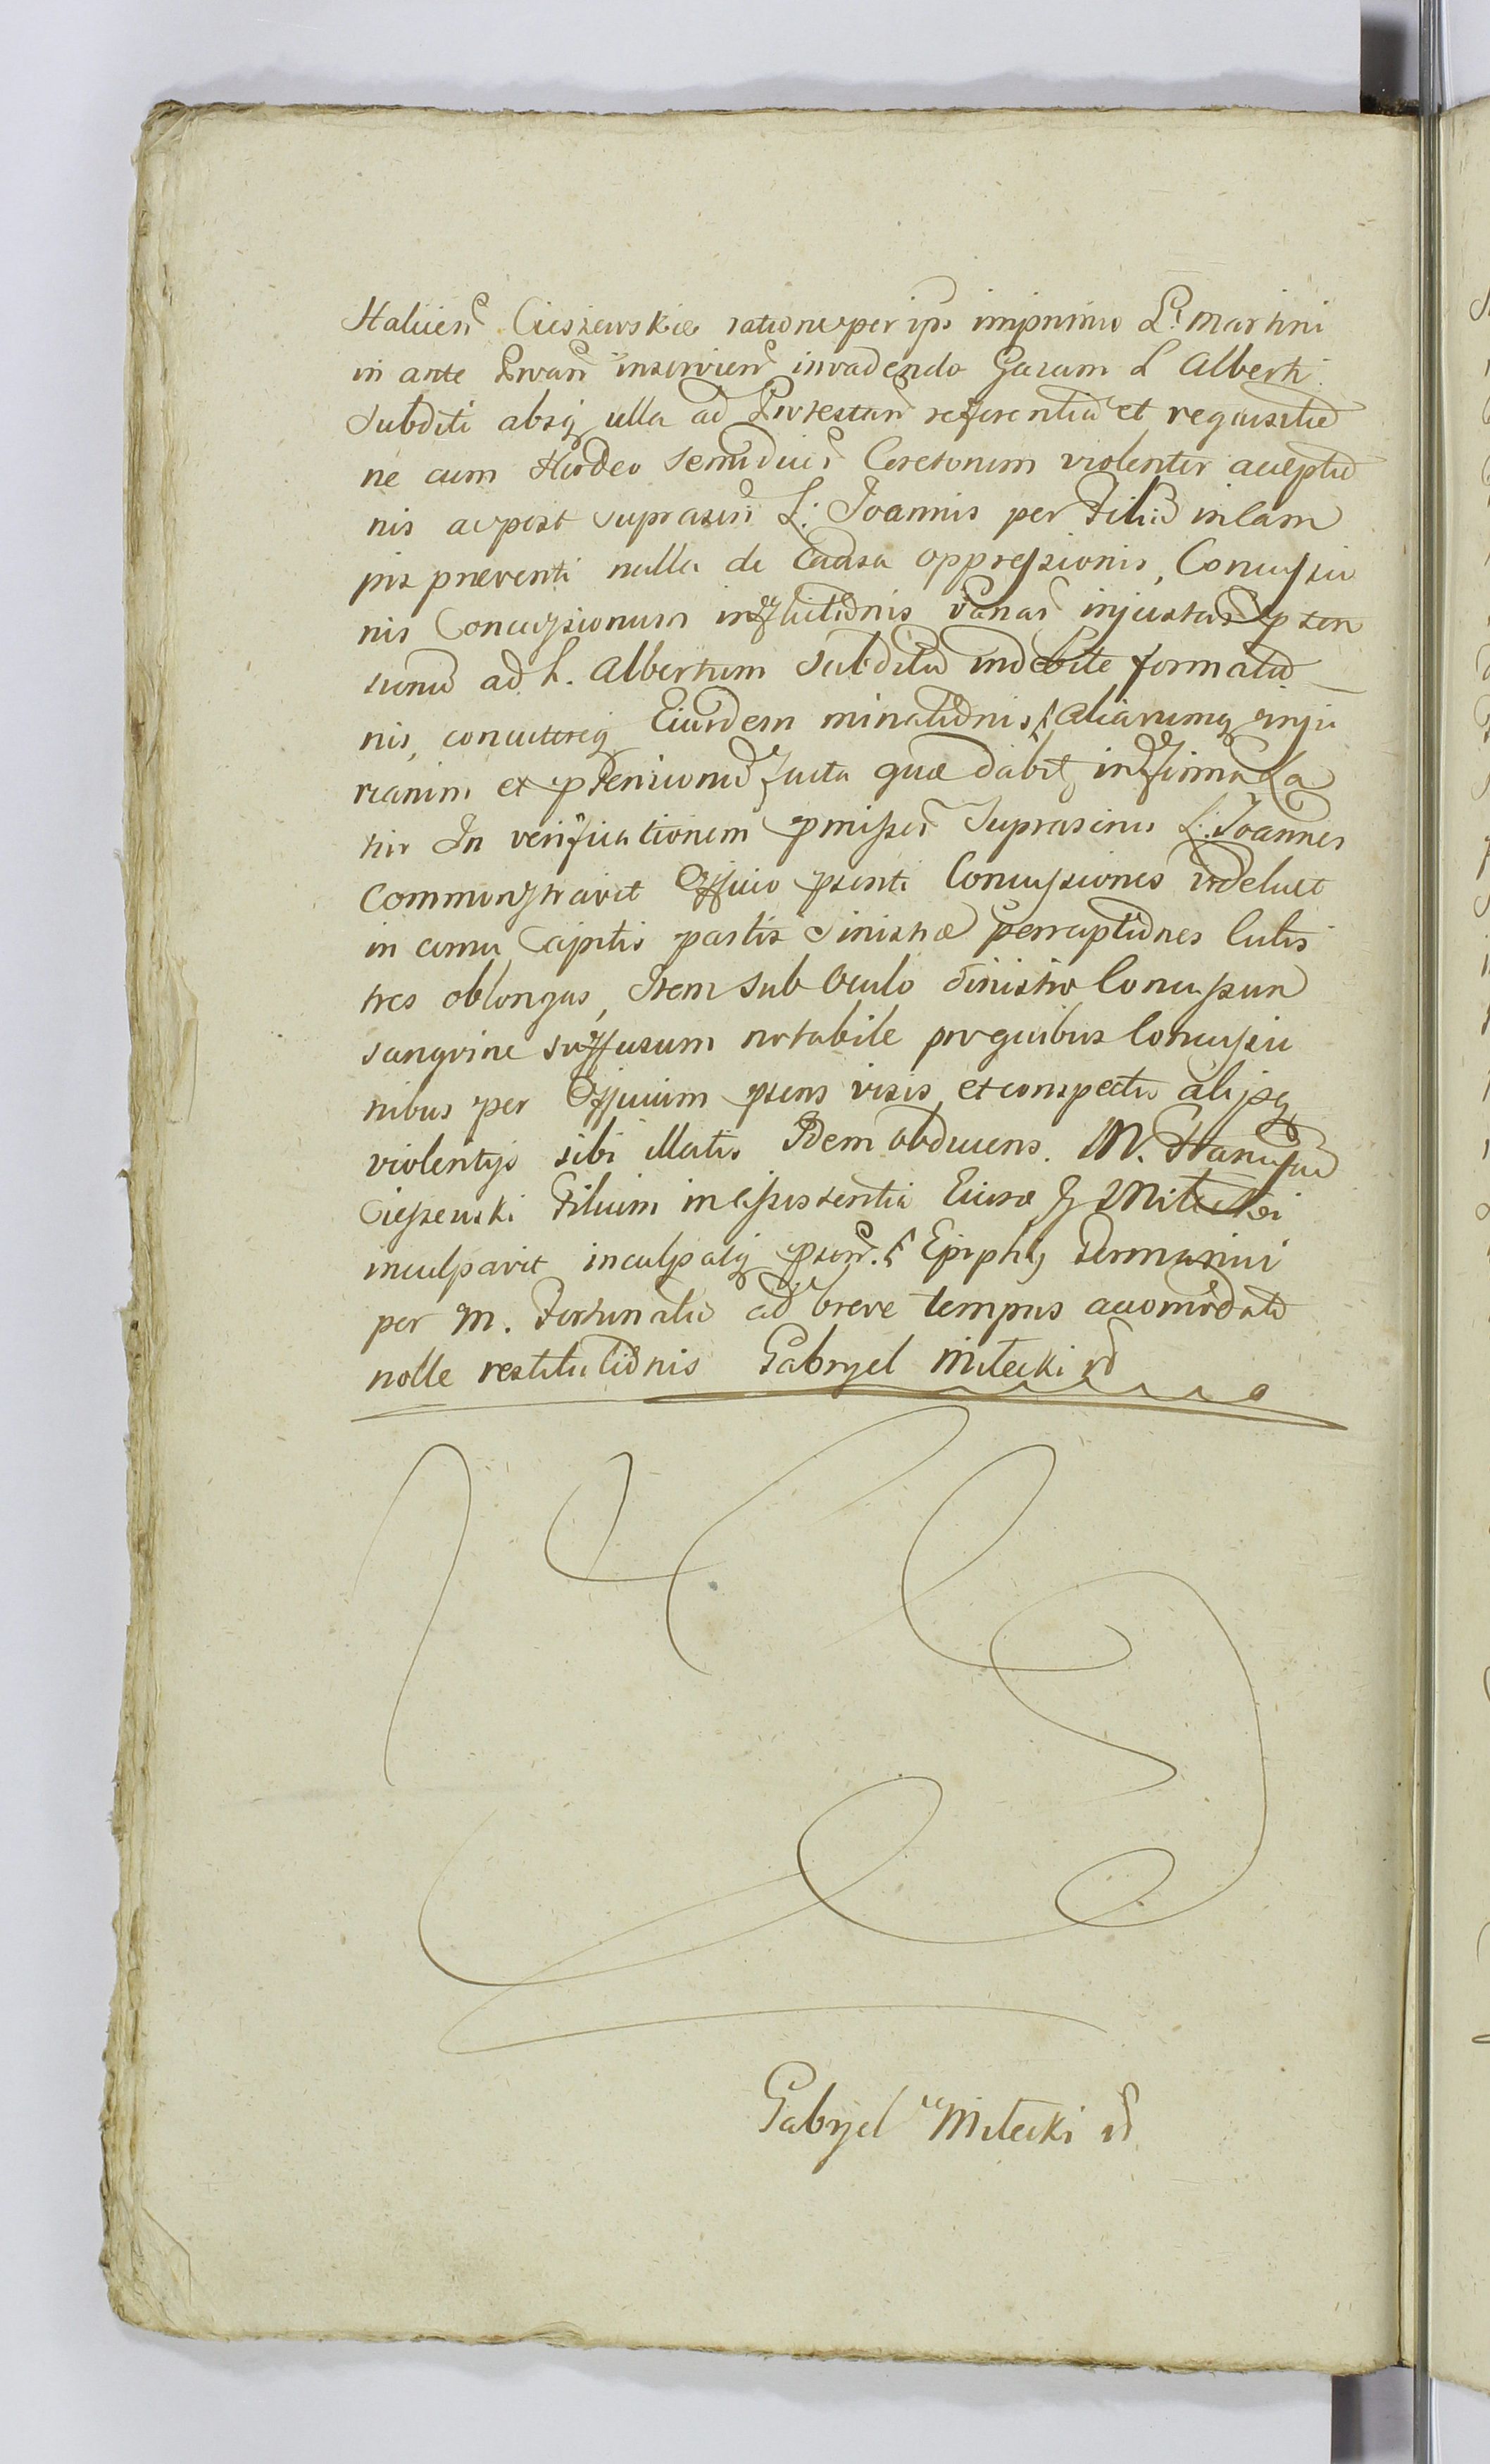 Staluień Cieszewskie ratione per ips imprimis L. Martini
in arte Piwań inservień invadendo Gazam L Alberti
Subditi absq ulla ad Protestań referentia et requisitio
ne cum Hordeo semiduei Coretonum violenter acceptio
nis ac post suprascri L: Joannis per Filiu in Cam
pis preventi nulla de Causa oppressionis, Concussio
nis Concussionum inflictionis varias injustas pten
sionu ad L. Albertum Subditu indebite formatio
nis, concuttereq Eiusdem minationis, Aliarumq inju
rianim et ptensionu juxta quæ dabit informa La
tir In verificationem pmissor Suprascrius L: Joannes
Commonstravit Officio psenti Concussiones videlicet
in cima Capitis partis sinistræ perruptiones Cutis
tres oblongas, Item sub Oculo sinistro Concussum
sangvine suffusum notabile pro quibus Concussio
nibus per Officium psens visis et conspectis alijsq
violentijs sibi illatis Idem obducens. M. Stanislau
Cieszewski Filium in assistentia Eiusd G Miłecki
inculpavit inculpatq psens. Epiphi
per M. Fortunatu ad breve tempus accomodati
nolle restitutionis Gabryel Miłecki
Gabryel Miłecki